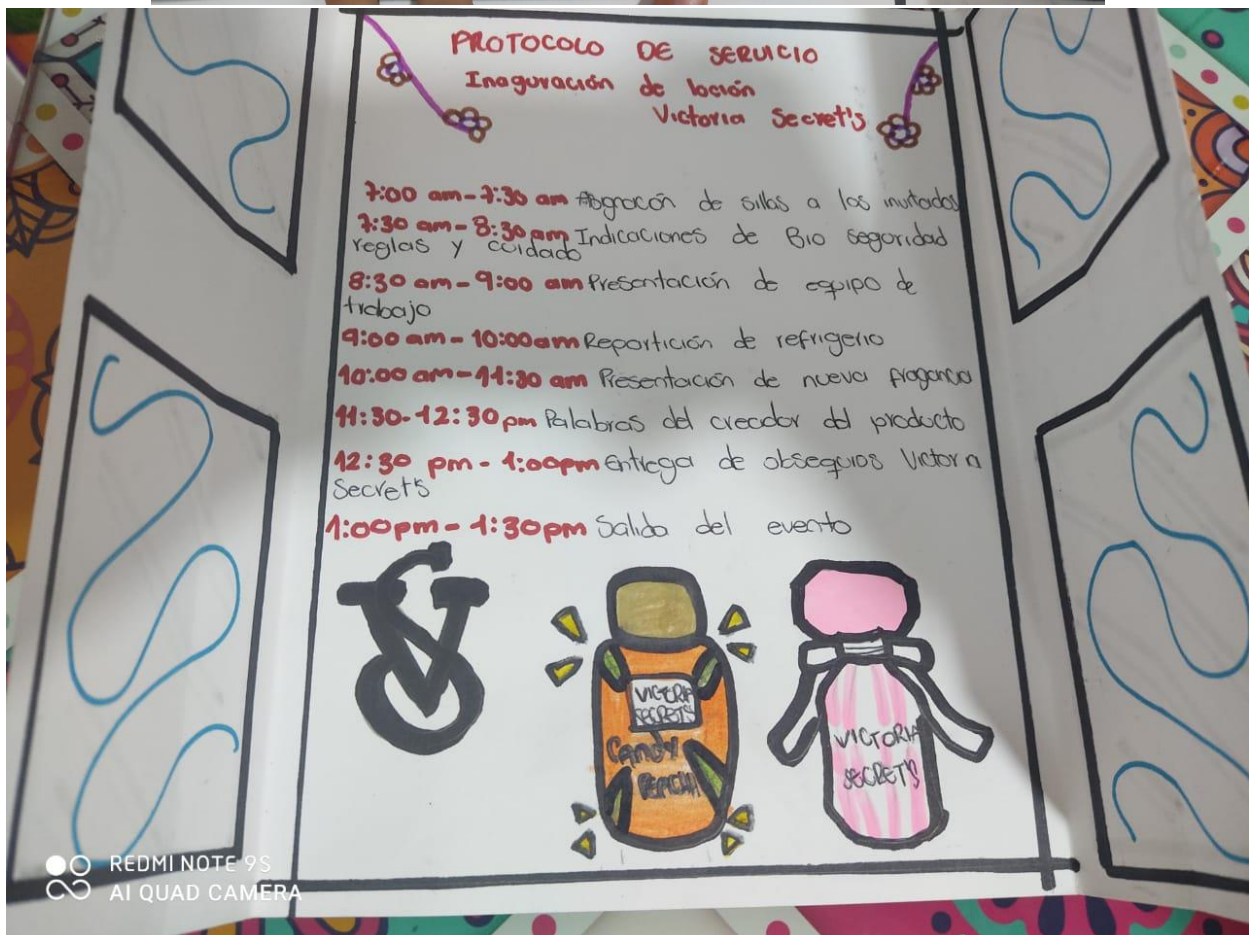 PROTOCOLO DE SERVICIO
Inaguración de loción
Victoria Secret's
7:00 am - 7:30 am Asignación de sillas a los invitados
7:30 am - 8:30 am Indicaciones de Bio seguridad
reglas y cuidado
8:30 am - 9:00 am Presentación de equipo de
trabajo
9:00 am - 10:00 am Repartición de refrigerio
10:00 am - 11:30 am Presentación de nueva fragancia
11:30 - 12:30 pm Palabras del creador del producto
12:30 pm - 1:00 pm Entrega de obsequios Victoria
Secret's
1:00 pm - 1:30 pm Salida del evento
VICTORIA
SECRETS
CANDY
PEACH
VICTORIA
SECRET'S
REDMI NOTE 9S
AI QUAD CAMERA